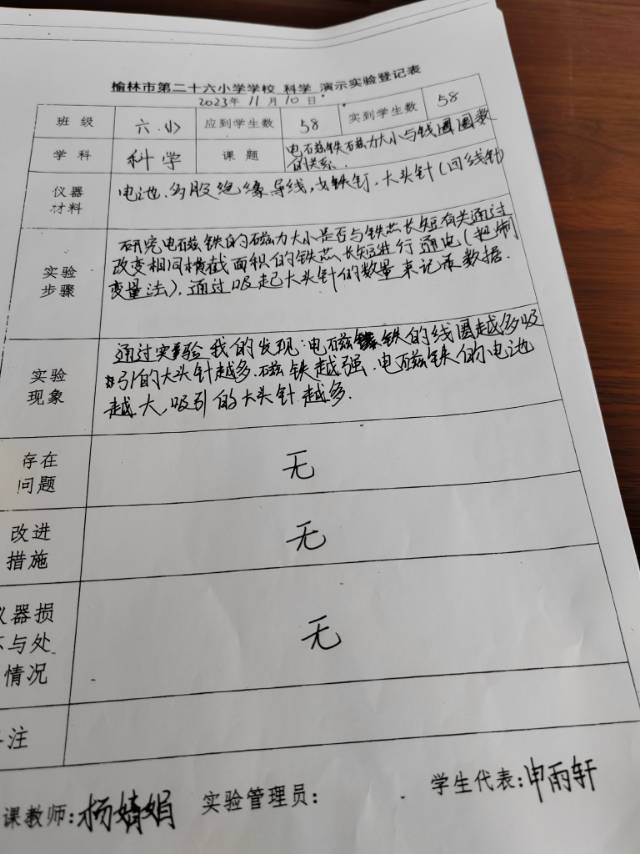 榆林市第二十六小学学校 科学 演示实验登记表
2023年 11月 10日
班级 六.小 应到学生数 58 实到学生数 58
学科 科学 课题 电石兹铁石兹力大小与线圈圈数
的关系.
仪器
材料
电池、多股绝缘导线,大铁钉、大头针(回线针)
实验
步骤
研究电石兹铁的磁力大小是否与铁芯长短有关通过
改变相同横截面积的铁芯长短进行通电(控制
变量法),通过吸起大头针的数量来记录数据.
实验
现象
通过实验我的发现:电石兹铁的线圈越多吸
引的大头针越多.磁铁越强.电石兹铁的电池
越大,吸引的大头针越多.
存在
问题
无
改进
措施
无
仪器损
坏与处
情况
无
注
课教师:杨婧娟 实验管理员: 学生代表:申雨轩